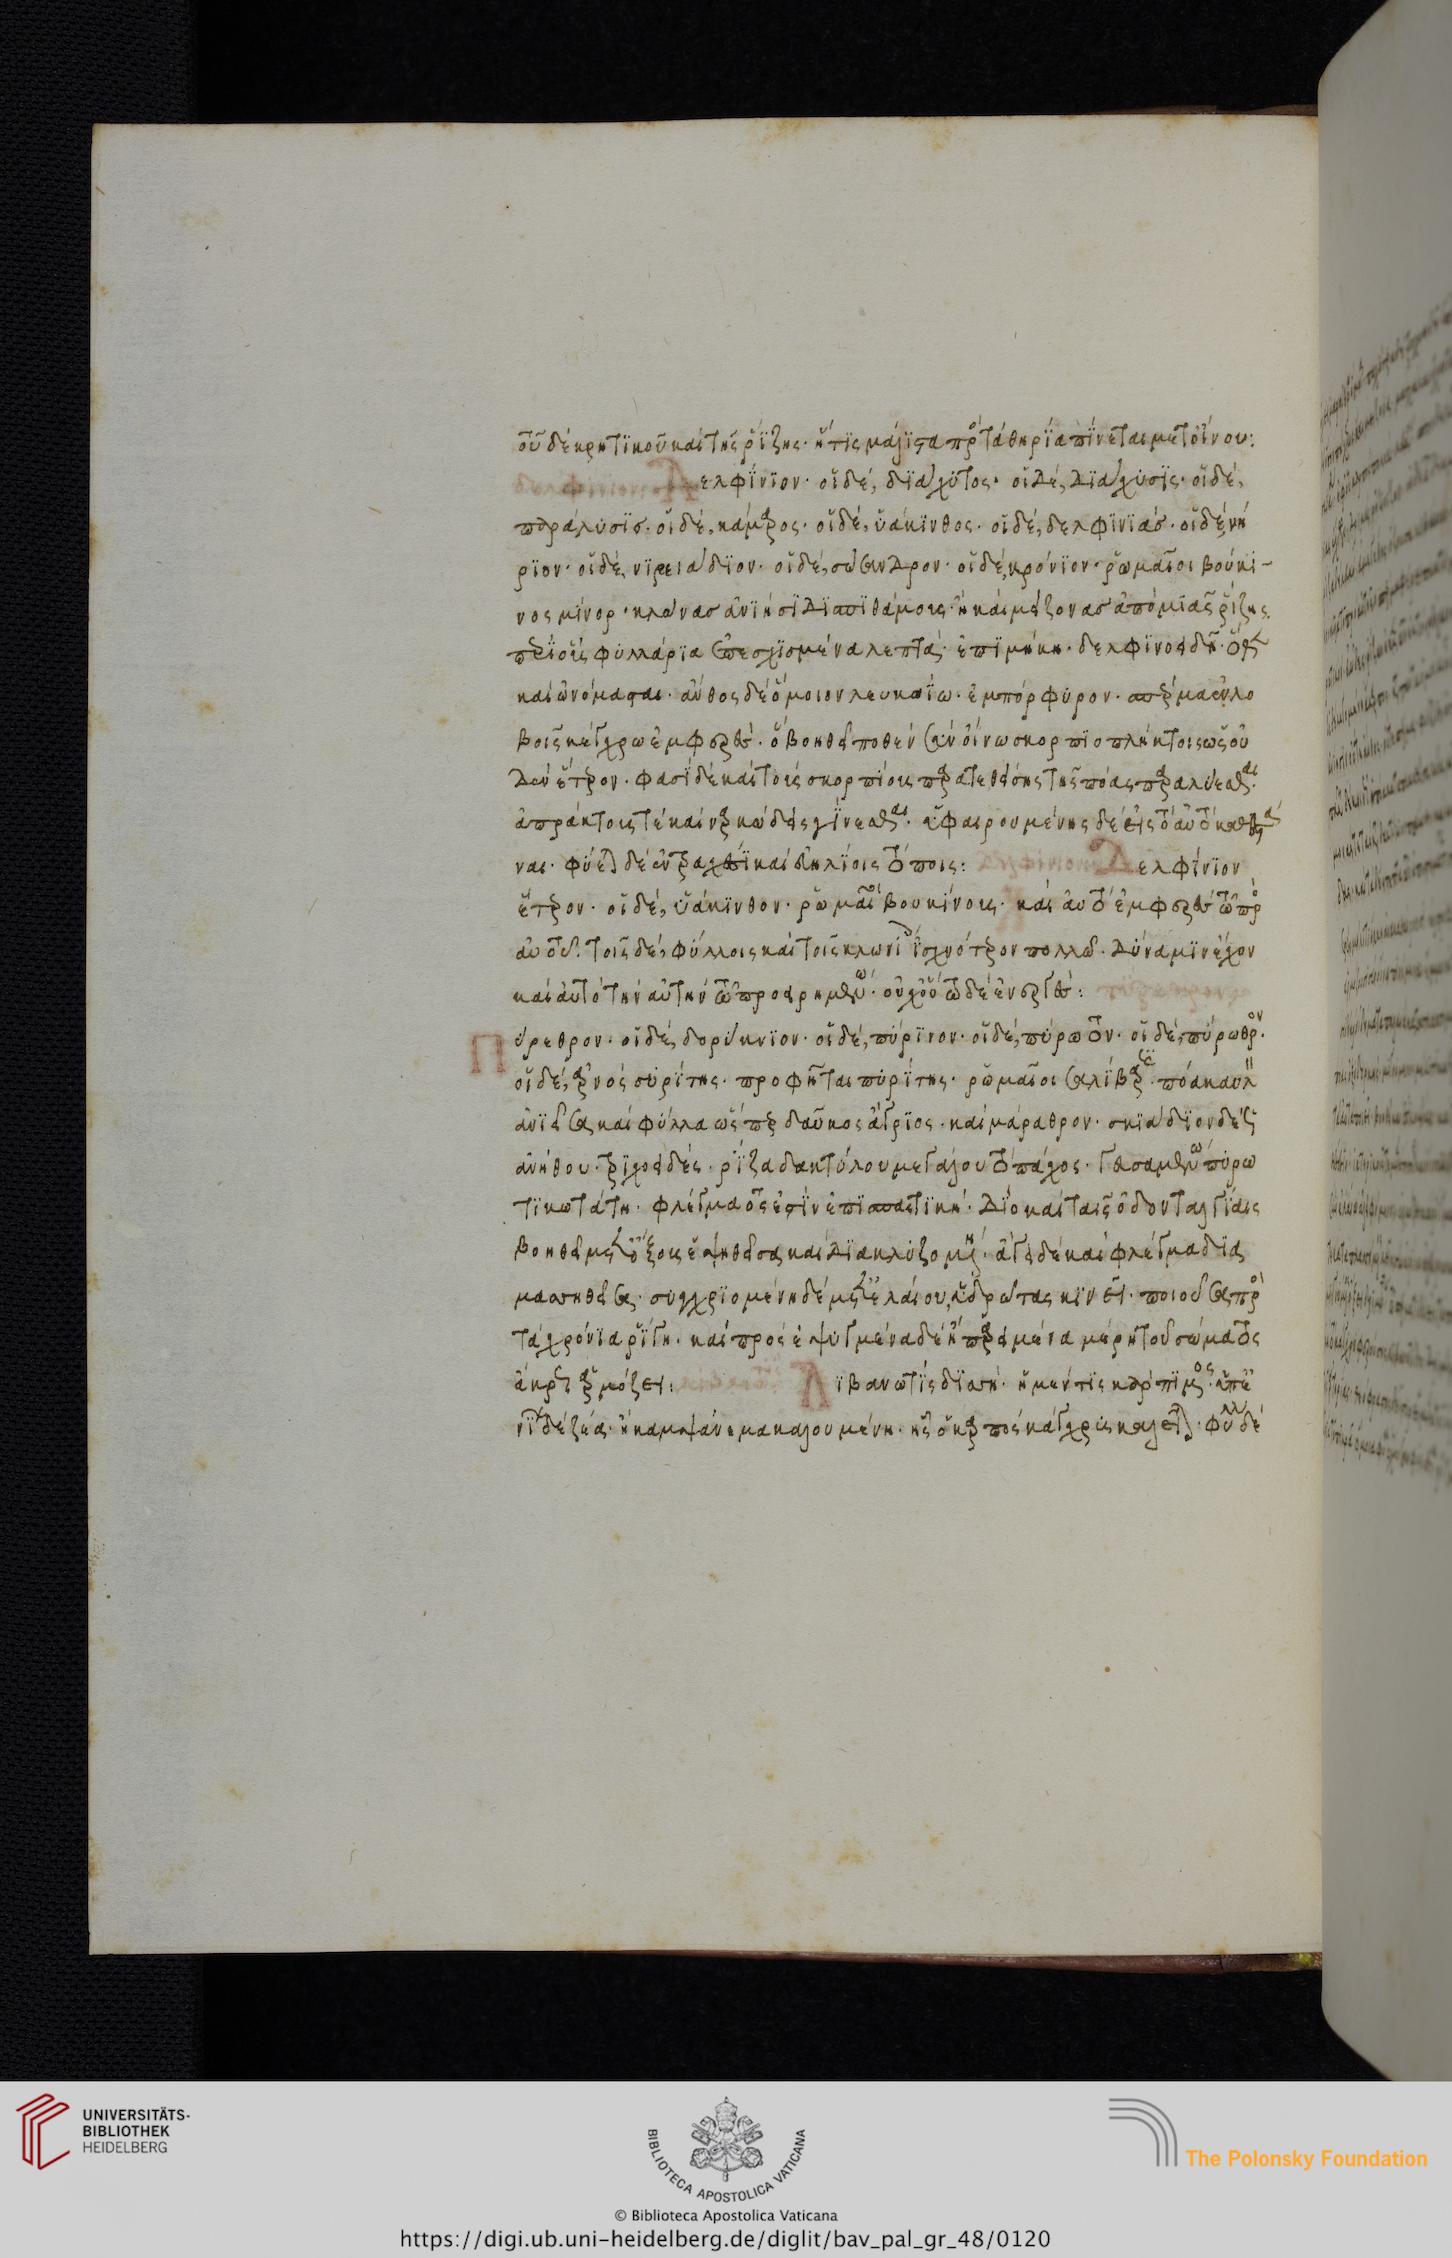 τοῦ δὲ κρητικοῦ καὶ τῆς ῥίζης· ἥτις μάλιστα πρὸς τὰ θηρία πίνεται μετ οἴνου:
Δελφίνιον· οἱ δὲ, διάχυτος· οἱ δὲ, διάχυσις· οἱ δὲ,
παράλυσις· οἱ δὲ, κάμαρος· οἱ δὲ, ὑάκινθος· οἱ δὲ, δελφινιάς· οἱ δὲ νή
ριον· οἱ δὲ, νηρειάδιον· οἱ δὲ, σώσανδρον· οἱ δὲ, κρόνιον· ῥωμαῖοι βουκί-
νος μίνορ· κλῶνας ἀνίησι δισπιθάμους· ἢ καὶ μείζονας ἀπὸ μιᾶς ῥίζης·
περὶ οἷς φυλλάρια ἐπεσχισμένα λεπτά· ἐπιμήκη· δελφινοειδῆ· ὅθεν
καὶ ὠνόμασται· ἄνθος δὲ ὅμοιον λευκοΐω· ἐμπόρφυρον· σπέρμα ἐν λο
βοῖς κέγχρω ἐμφερὲς· ὃ βοηθεῖ ποθὲν σὺν οἴνω σκορπιοπλήκτοις ὡς οὐ
δὲν ἕτερον· φασὶ δὲ καὶ τοὺς σκορπίους παρατεθείσης τῆς πόας παραλύεσθαι·
ἀπράκτους τὲ καὶ ναρκώδεις γίνεσθαι· ἀφαιρουμένης δὲ εἰς τὸ αὐτὸ καθίστα
ναι· φύεται δὲ ἐν τραχέσι καὶ εὐηλίοις τόποις: Δελφίνιον
ἕτερον· οἱ δὲ, ὑάκινθον· ῥωμαῖοι βουκίνους· καὶ αὐτὸ ἐμφερὲς τῶ πρὸ
αὐτοῦ· τοῖς δὲ, φύλλοις καὶ τοῖς κλωνίοις ἰσχνότερον πολλῶ· δύναμιν ἔχον
καὶ αὐτὸ τὴν αὐτὴν τῶ προειρημένω· οὐχ οὕτω δὲ ἐνεργὲς:
Πύρεθρον· οἱ δὲ, δορύκνιον· οἱ δὲ, πύρινον· οἱ δὲ, πύρωτον· οἱ δὲ, πύρωθρον·
οἱ δὲ, ἀρνὸς πυρίτης· προφῆται πυρίτης· ῥωμαῖοι σαλιβάρεις· πόα καυλὸν
ἀνιεῖσα καὶ φύλλα ὥσπερ δαῦκος ἄγριος· καὶ μάραθρον· σκιάδιον δὲ ὡς
ἀνήθου· τριχοειδές· ῥίζα δακτύλου μεγάλου τὸ πάχος· γευσαμένω πυρω
τικωτάτη· φλέγματός ἐστιν ἐπισπαστική· διὸ καὶ ταῖς ὀδονταλγίαις
βοηθεῖ μετὰ ὄξους ἑψηθεῖσα καὶ διακλυζομένη· ἄγει δὲ καὶ φλέγμα δια
μασηθεῖσα· συγχριομένη δὲ μετὰ ἐλαίου, ἱδρῶτας κινεῖ· ποιοῦσα πρὸς
τὰ χρόνια ῥίγη· καὶ πρὸς ἐψυγμένα δὲ ἢ παρειμένα μέρη τοῦ σώματος
ἄκρως ἁρμόζει: Λιβανωτὶς δισσή· ἡ μέν τις κάρπιμος· ὑπὲ
νίων δὲ ζέα· ἢ καμψάνεμα καλουμένη· ἧς ὁ καρπὸς κάγχρυς καλεῖται· φύλλα δὲ
UNIVERSITÄTS-
BIBLIOTHEK
HEIDELBERG
BIBLIOTECA APOSTOLICA VATICANA
© Biblioteca Apostolica Vaticana
The Polonsky Foundation
https://digi.ub.uni-heidelberg.de/diglit/bav_pal_gr_48/0120